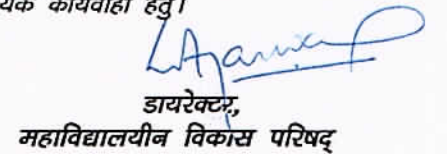 कार्यवाही हेतु।
डायरेक्टर,
महाविद्यालयीन विकास परिषद्